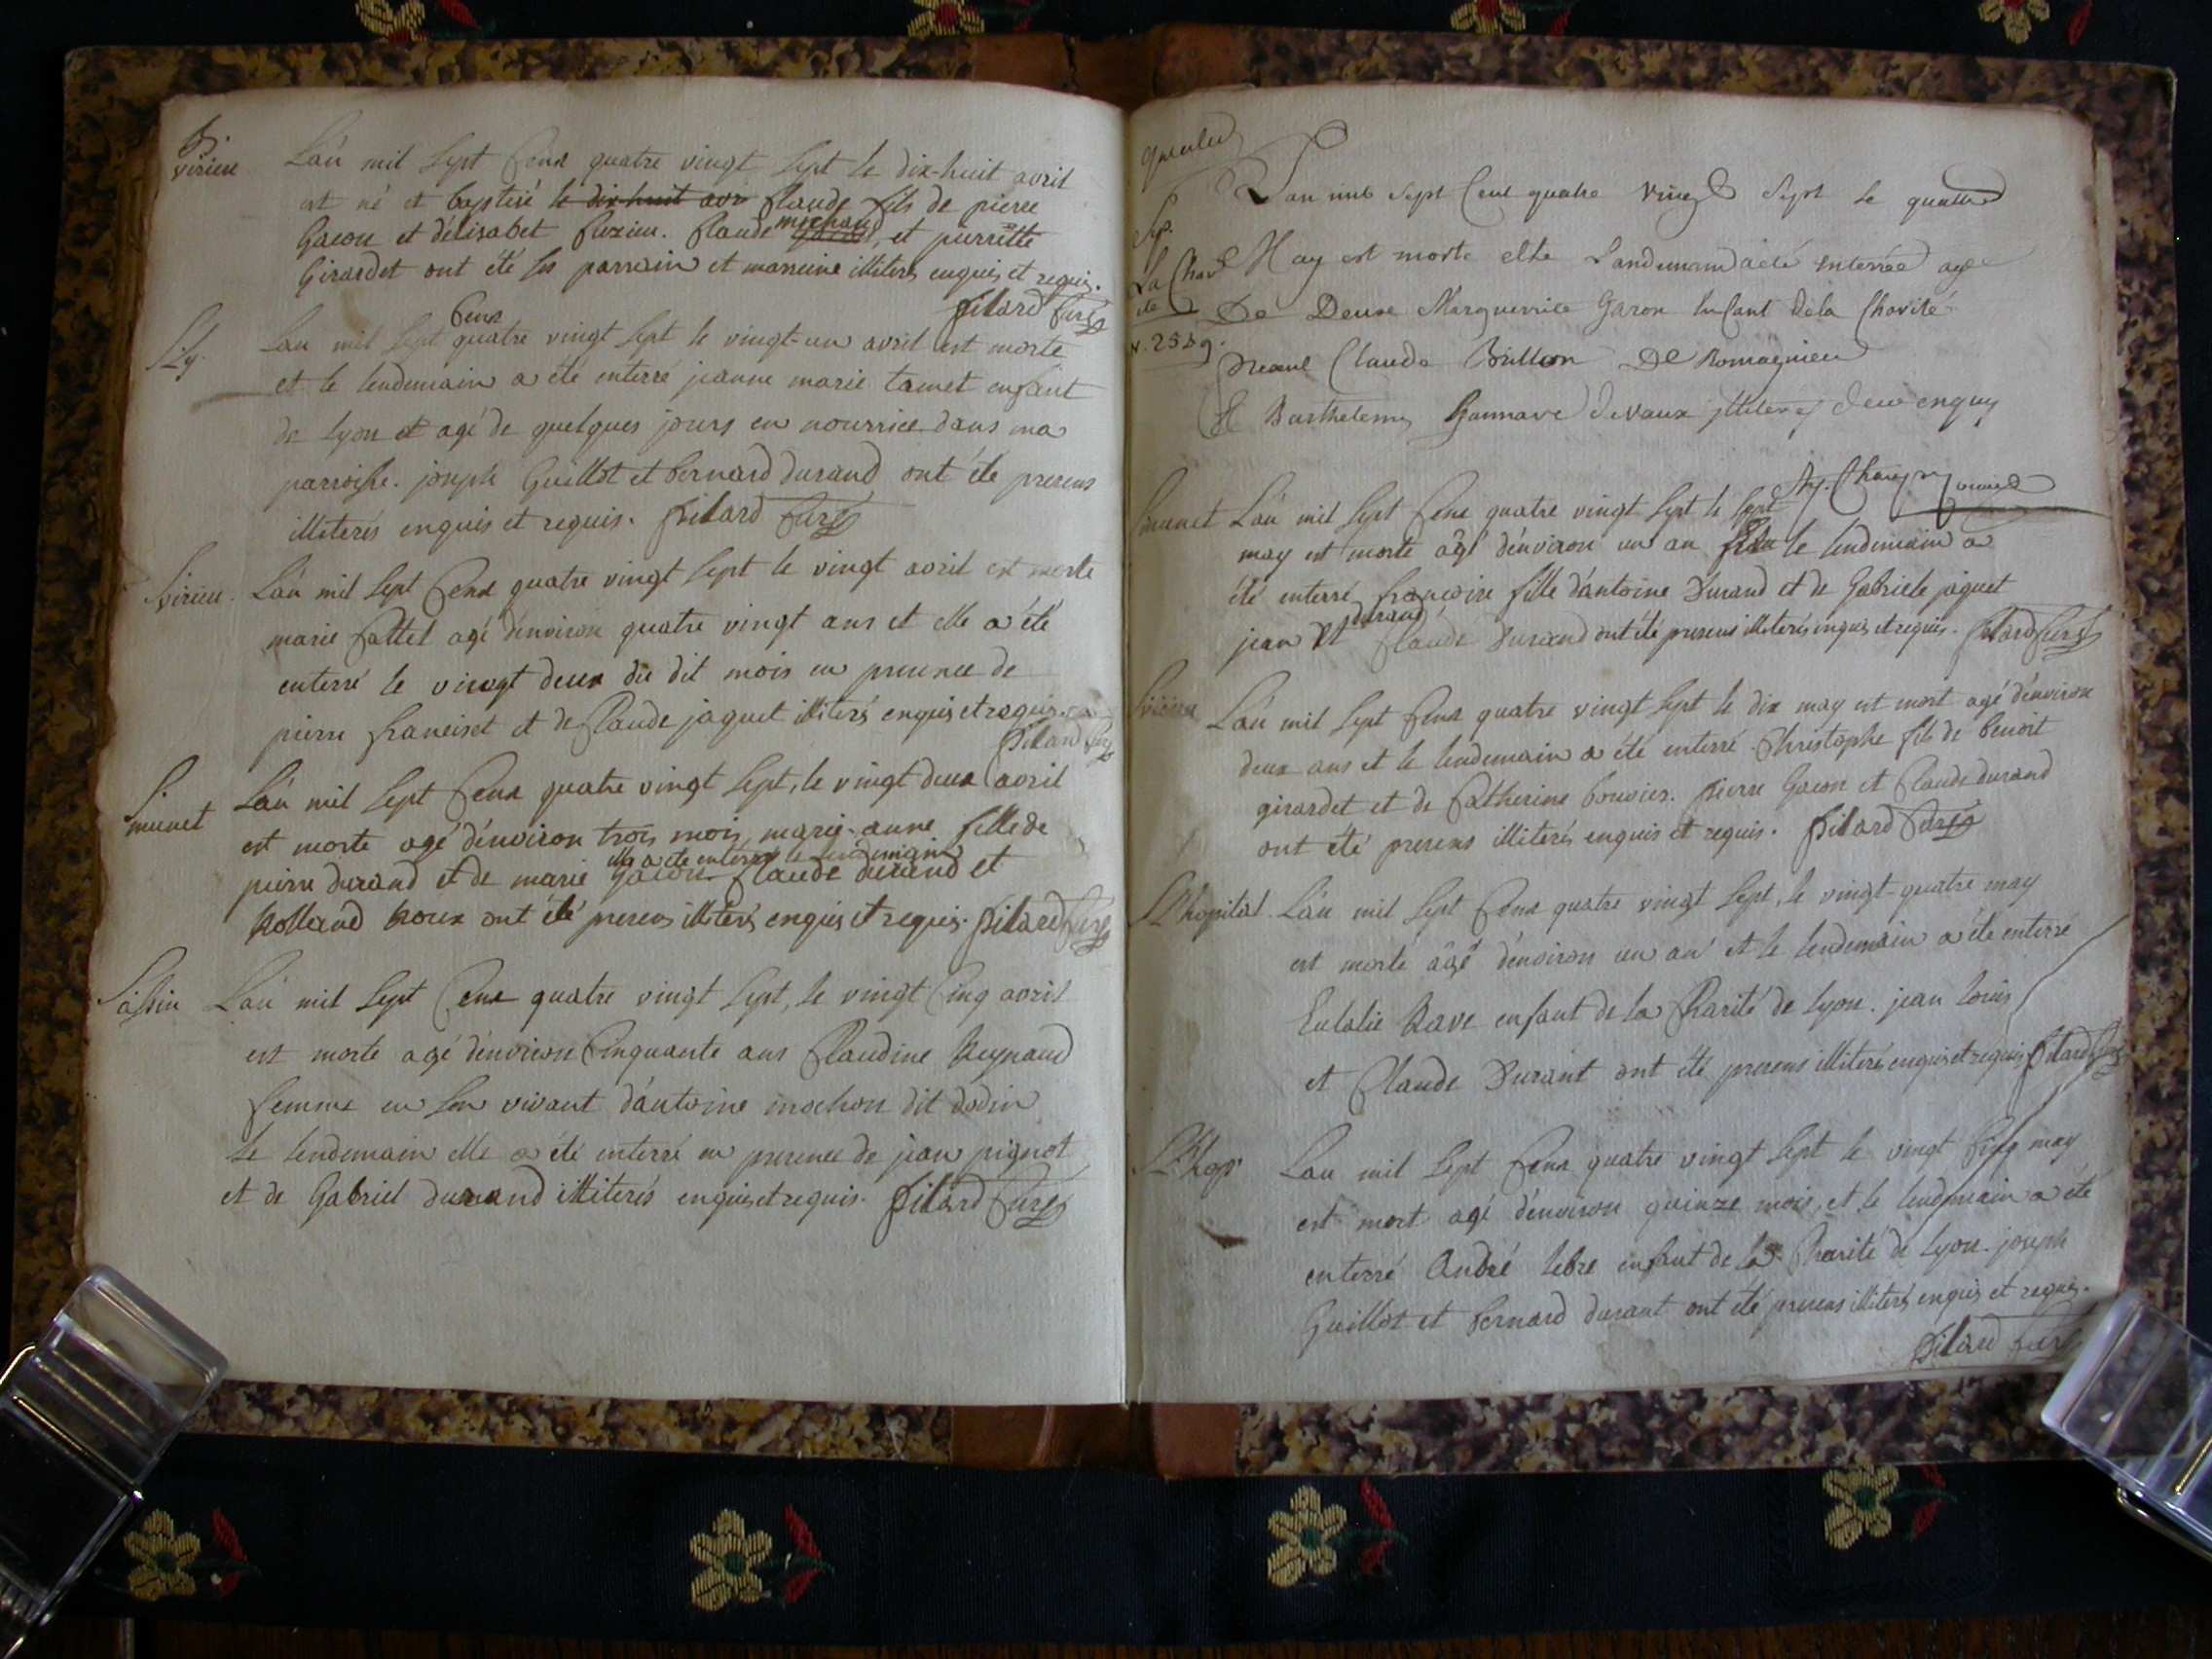 B.
virieu
L'an mil sept Cens quatre vingt sept le dix-huit avril
est né et baptisé le dix huit avr Claude fils de pierre
Gacon et d'élisabet Cuzieu. Claude michaud, et pierrette
Girardet ont été les parrain et marreine illiterés enquis et requis.
pitard Curé
S. ly.
L'an mil sept Cens quatre vingt sept le vingt-un avril est morte
et le lendemain a été enterré jeanne marie tamet enfant
de lyon et agé de quelques jours en nourrice dans ma
parroisse. joseph Guillot et bernard durand ont été presens
illiterés enquis et requis. pitard Curé
S. virieu.
L'an mil sept Cens quatre vingt sept le vingt avril est morte
marie Cattel agé d'environ quatre vingt ans et elle a été
enterré le vingt deux du dit mois en presence de
pierre franciset et de Claude jaquet illiterés enquis et requis.
pitard Curé
S. munet
L'an mil sept Cens quatre vingt sept, le vingt deux avril
est morte agé d'environ trois mois, marie-anne fille de
elle a été enterré le lendemain
pierre durand et de marie Gacon. Claude durand et
Rolland Roux ont été presens illiterés enquis et requis. pitard Curé
S. assin
L'an mil sept Cens quatre vingt sept, le vingt Cinq avril
est morte agé d'environ Cinquante ans Claudine Reynaud
femme en son vivant d'antoine mochon dit dodin
le lendemain elle a été enterré en presence de jean pignot
et de Gabriel durand illiterés enquis et requis. pitard Curé
Sep.
La Charité
N. 2539.
L'an mil sept Cent quatre vingt sept le quatre
May est morte et le Landemain a été enterrée agée
De Deux Marguerrite Garon enfant de la Charité
Present Claude Brillon De Romagnieu
Et Barthelemy Gonnave devaux illiteres deux enquis
S. munet
L'an mil sept Cens quatre vingt sept le sept
may est morte âgé d'environ un an et le lendemain a
été enterré françoise fille d'antoine Durand et de Gabriele jaquet
jean durand et Claude Durand ont été presens illiterés enquis et requis. pitard Curé
S. virieu
L'an mil sept Cens quatre vingt sept le dix may est mort agé d'environ
deux ans et le lendemain a été enterré Christophe fils de benoit
girardet et de Catherine bouvier. pierre Gacon et Claude durand
ont été presens illiterés enquis et requis. pitard Curé
S. L'hopital.
L'an mil sept Cens quatre vingt sept, le vingt-quatre may
est morte âgé d'environ un an et le lendemain a été enterré
Eulalie Rave enfant de la Charité de lyon. jean louis
et Claude Durant ont été presens illiterés enquis et requis pitard Curé
S. L'hop.
L'an mil sept Cens quatre vingt sept le vingt Cinq may
est mort agé d'environ quinze mois, et le lendemain a été
enterré André lebre enfant de la Charité de lyon. joseph
Guillot et bernard durant ont été presens illiterés enquis et requis.
pitard Curé